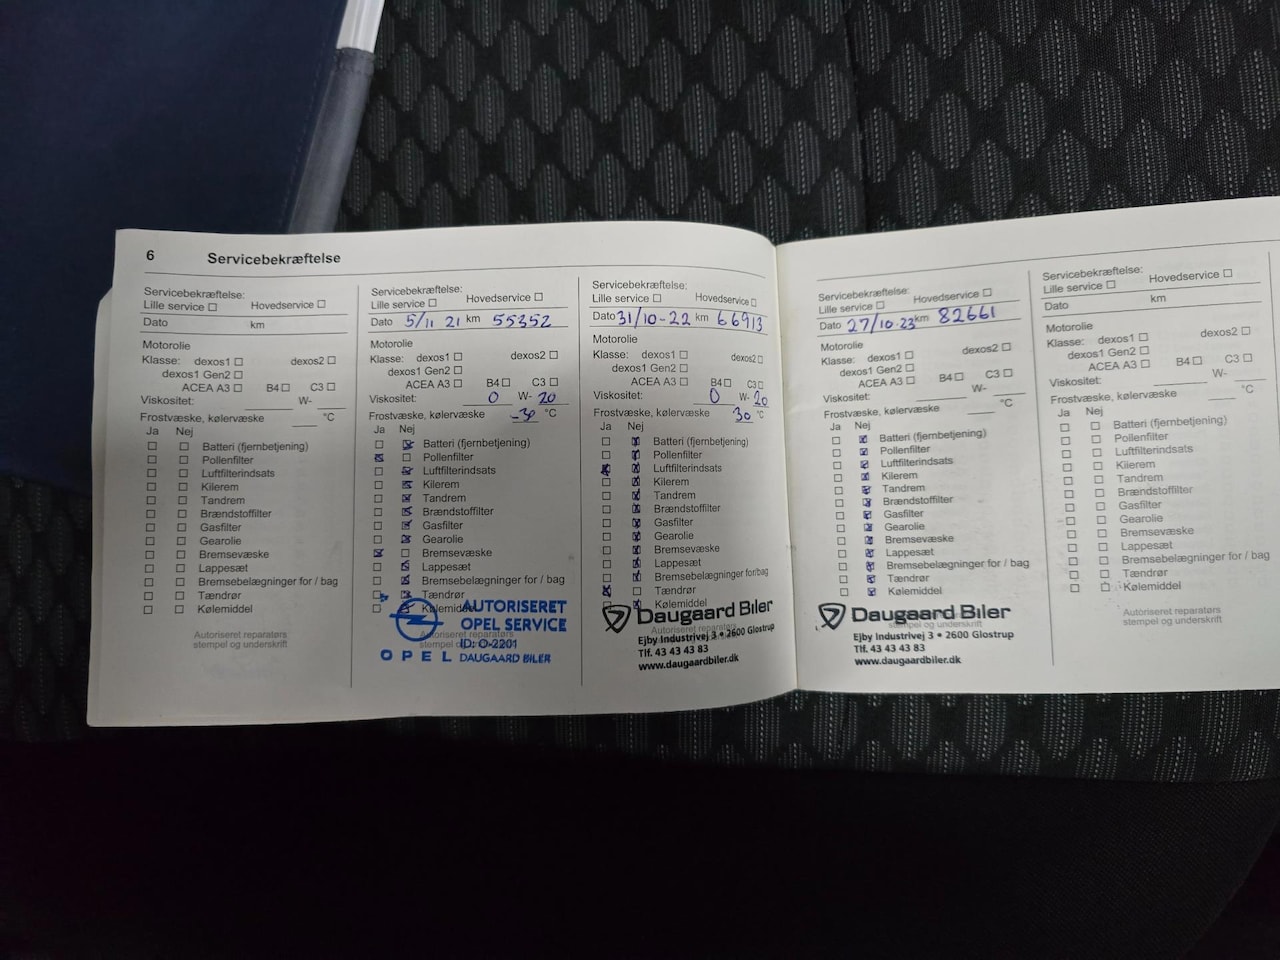 6 Servicebekræftelse
Servicebekræftelse:
Lille service ☐ Hovedservice ☐
Dato km
Motorolie
Klasse: dexos1 ☐ dexos2 ☐
dexos1 Gen2 ☐
ACEA A3 ☐ B4 ☐ C3 ☐
Viskositet: W-
Frostvæske, kølervæske °C
Ja Nej
☐ ☐ Batteri (fjernbetjening)
☐ ☐ Pollenfilter
☐ ☐ Luftfilterindsats
☐ ☐ Kilerem
☐ ☐ Tandrem
☐ ☐ Brændstoffilter
☐ ☐ Gasfilter
☐ ☐ Gearolie
☐ ☐ Bremsevæske
☐ ☐ Lappesæt
☐ ☐ Bremsebelægninger for / bag
☐ ☐ Tændrør
☐ ☐ Kølemiddel
Autoriseret reparatørs
stempel og underskrift
Servicebekræftelse:
Lille service ☐ Hovedservice ☐
Dato 5/11 21 km 55352
Motorolie
Klasse: dexos1 ☐ dexos2 ☐
dexos1 Gen2 ☐
ACEA A3 ☐ B4 ☐ C3 ☐
Viskositet: 0 W- 20
Frostvæske, kølervæske -30 °C
Ja Nej
☐ ☒ Batteri (fjernbetjening)
☒ ☐ Pollenfilter
☐ ☒ Luftfilterindsats
☐ ☒ Kilerem
☐ ☒ Tandrem
☐ ☒ Brændstoffilter
☐ ☒ Gasfilter
☐ ☒ Gearolie
☒ ☐ Bremsevæske
☐ ☒ Lappesæt
☐ ☒ Bremsebelægninger for / bag
☐ ☒ Tændrør
☐ ☒ Kølemiddel
Autoriseret reparatørs
stempel og underskrift
AUTORISERET
OPEL SERVICE
ID: O-2201
OPEL DAUGAARD BILER
Servicebekræftelse:
Lille service ☐ Hovedservice ☐
Dato 31/10-22 km 66913
Motorolie
Klasse: dexos1 ☐ dexos2 ☐
dexos1 Gen2 ☐
ACEA A3 ☐ B4 ☐ C3 ☐
Viskositet: 0 W- 20
Frostvæske, kølervæske 30 °C
Ja Nej
☐ ☒ Batteri (fjernbetjening)
☐ ☒ Pollenfilter
☒ ☒ Luftfilterindsats
☐ ☒ Kilerem
☐ ☒ Tandrem
☐ ☒ Brændstoffilter
☐ ☒ Gasfilter
☐ ☒ Gearolie
☐ ☒ Bremsevæske
☐ ☒ Lappesæt
☐ ☒ Bremsebelægninger for/bag
☒ ☐ Tændrør
☐ ☒ Kølemiddel
Autoriseret reparatørs
Daugaard Biler
Ejby Industrivej 3 • 2600 Glostrup
Tlf. 43 43 43 83
www.daugaardbiler.dk
Servicebekræftelse:
Lille service ☐ Hovedservice ☐
Dato 27/10.23 km 82661
Motorolie
Klasse: dexos1 ☐ dexos2 ☐
dexos1 Gen2 ☐
ACEA A3 ☐ B4 ☐ C3 ☐
Viskositet: W-
Frostvæske, kølervæske °C
Ja Nej
☐ ☒ Batteri (fjernbetjening)
☐ ☒ Pollenfilter
☐ ☒ Luftfilterindsats
☐ ☒ Kilerem
☐ ☒ Tandrem
☐ ☒ Brændstoffilter
☐ ☒ Gasfilter
☐ ☒ Gearolie
☐ ☒ Bremsevæske
☐ ☒ Lappesæt
☐ ☒ Bremsebelægninger for / bag
☐ ☒ Tændrør
☐ ☒ Kølemiddel
stempel og underskrift
Daugaard Biler
Ejby Industrivej 3 • 2600 Glostrup
Tlf. 43 43 43 83
www.daugaardbiler.dk
Servicebekræftelse:
Lille service ☐ Hovedservice ☐
Dato km
Motorolie
Klasse: dexos1 ☐ dexos2 ☐
dexos1 Gen2 ☐
ACEA A3 ☐ B4 ☐ C3 ☐
Viskositet: W-
Frostvæske, kølervæske °C
Ja Nej
☐ ☐ Batteri (fjernbetjening)
☐ ☐ Pollenfilter
☐ ☐ Luftfilterindsats
☐ ☐ Kilerem
☐ ☐ Tandrem
☐ ☐ Brændstoffilter
☐ ☐ Gasfilter
☐ ☐ Gearolie
☐ ☐ Bremsevæske
☐ ☐ Lappesæt
☐ ☐ Bremsebelægninger for / bag
☐ ☐ Tændrør
☐ ☐ Kølemiddel
Autoriseret reparatørs
stempel og underskrift